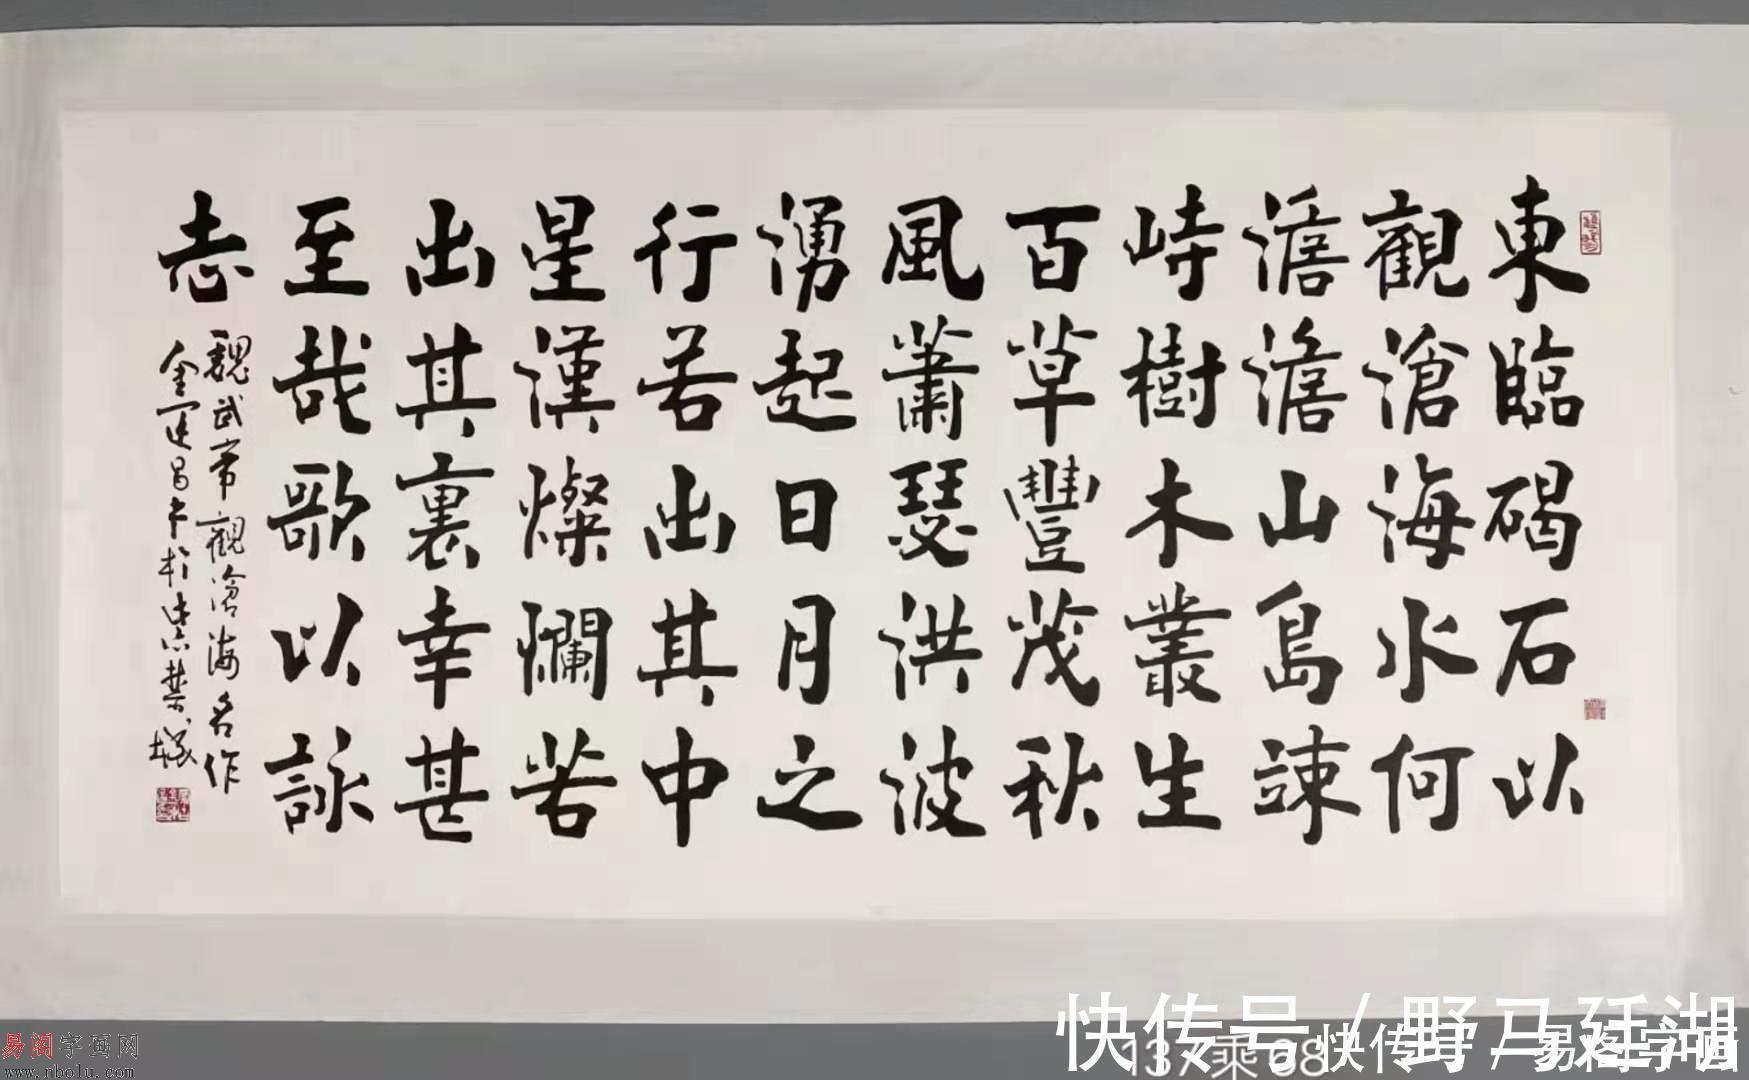 東臨碣石以
觀滄海水何
澹澹山島竦
峙樹木叢生
百草豐茂秋
風蕭瑟洪波
湧起日月之
行若出其中
星漢燦爛若
出其裏幸甚
至哉歌以詠
志
魏武帝觀滄海名作
金運昌
易阁字画网
www.rbolu.com
快传号/野马廷湖
137乘68